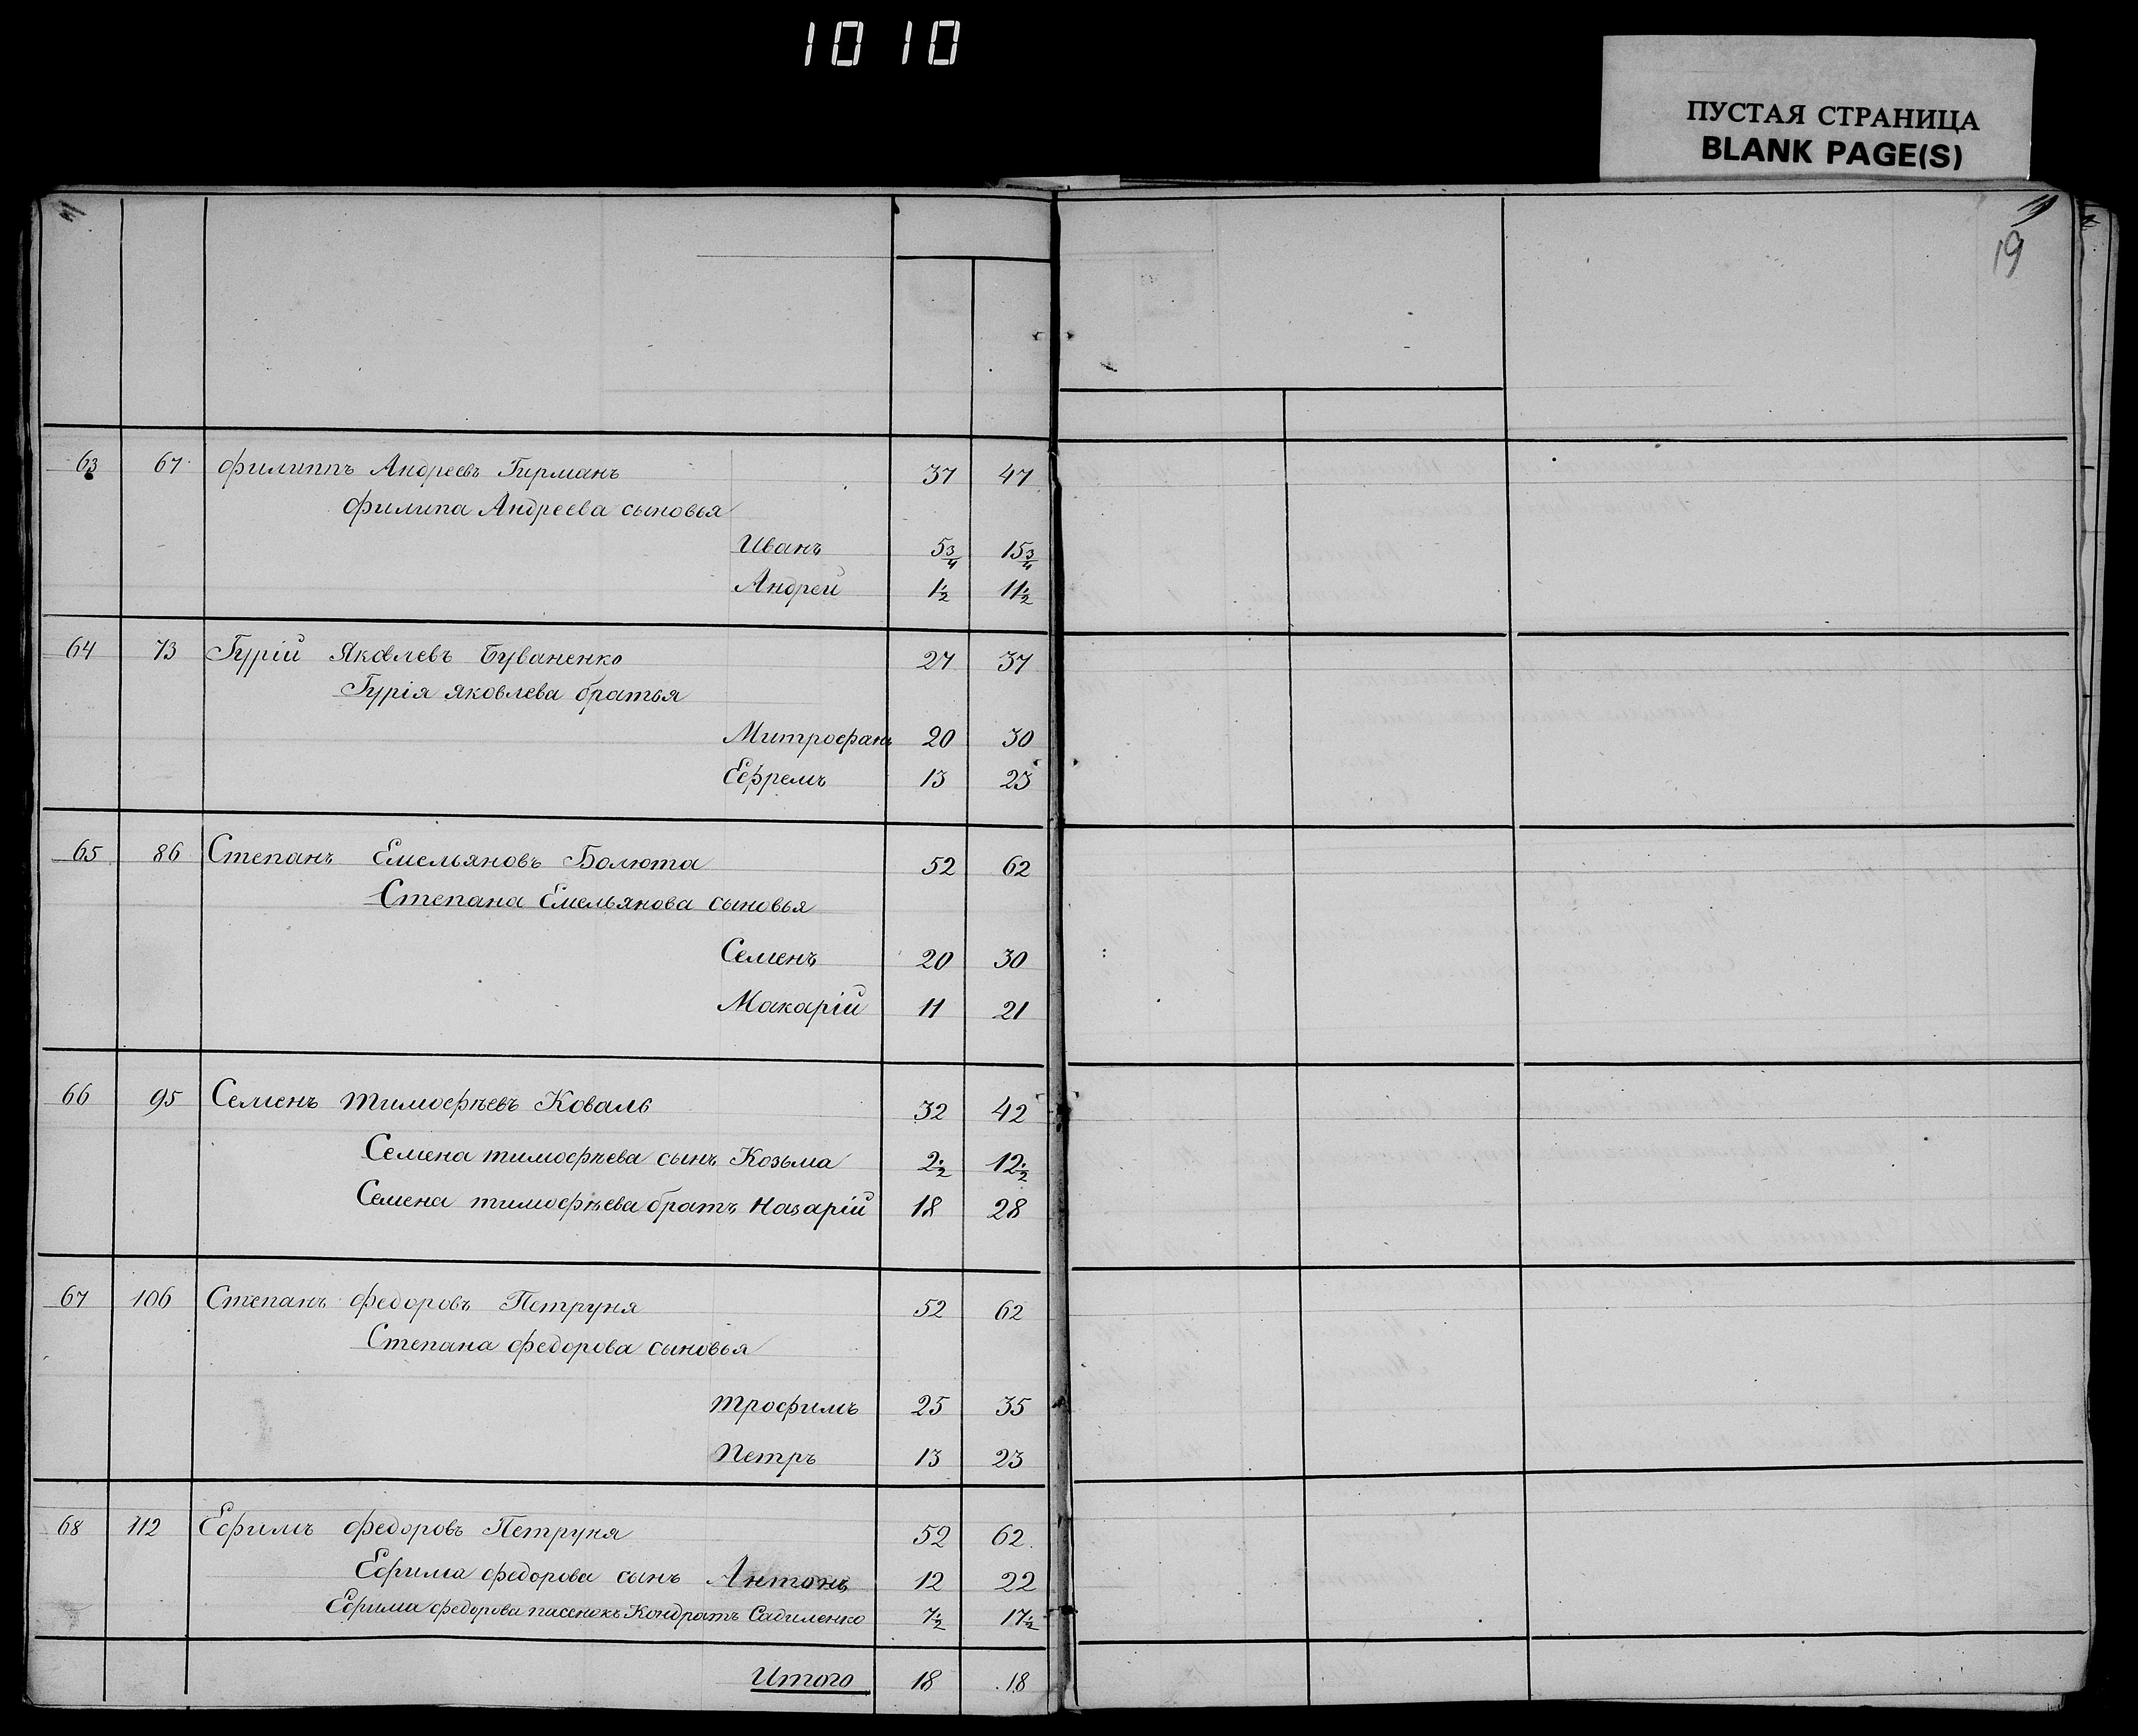 1010
ПУСТАЯ СТРАНИЦА
BLANK PAGE(S)
19
63 67 Филиппъ Андреевъ Гирманъ 37 47
Филипа Андреева сыновья
Иванъ 5 3/4 15 3/4
Андрей 1 1/2 11 1/2
64 73 Гурій Яковлевъ Буваненко 27 37
Гурія Яковлева братья
Митрофанъ 20 30
Ефремъ 13 23
65 86 Степанъ Емельяновъ Болюта 52 62
Степана Емельянова сыновья
Семенъ 20 30
Макарій 11 21
66 95 Семенъ Тимофѣевъ Коваль 32 42
Семена Тимофѣева сынъ Козьма 2 1/2 12 1/2
Семена Тимофѣева братъ Назарій 18 28
67 106 Степанъ Федоровъ Петруня 52 62
Степана Федорова сыновья
Трофимъ 25 35
Петръ 13 23
68 112 Ефимъ Федоровъ Петруня 52 62
Ефима Федорова сынъ Антонъ 12 22
Ефима Федорова пасенокъ Кондратъ Садиленко 7 1/2 17 1/2
Итого 18 18